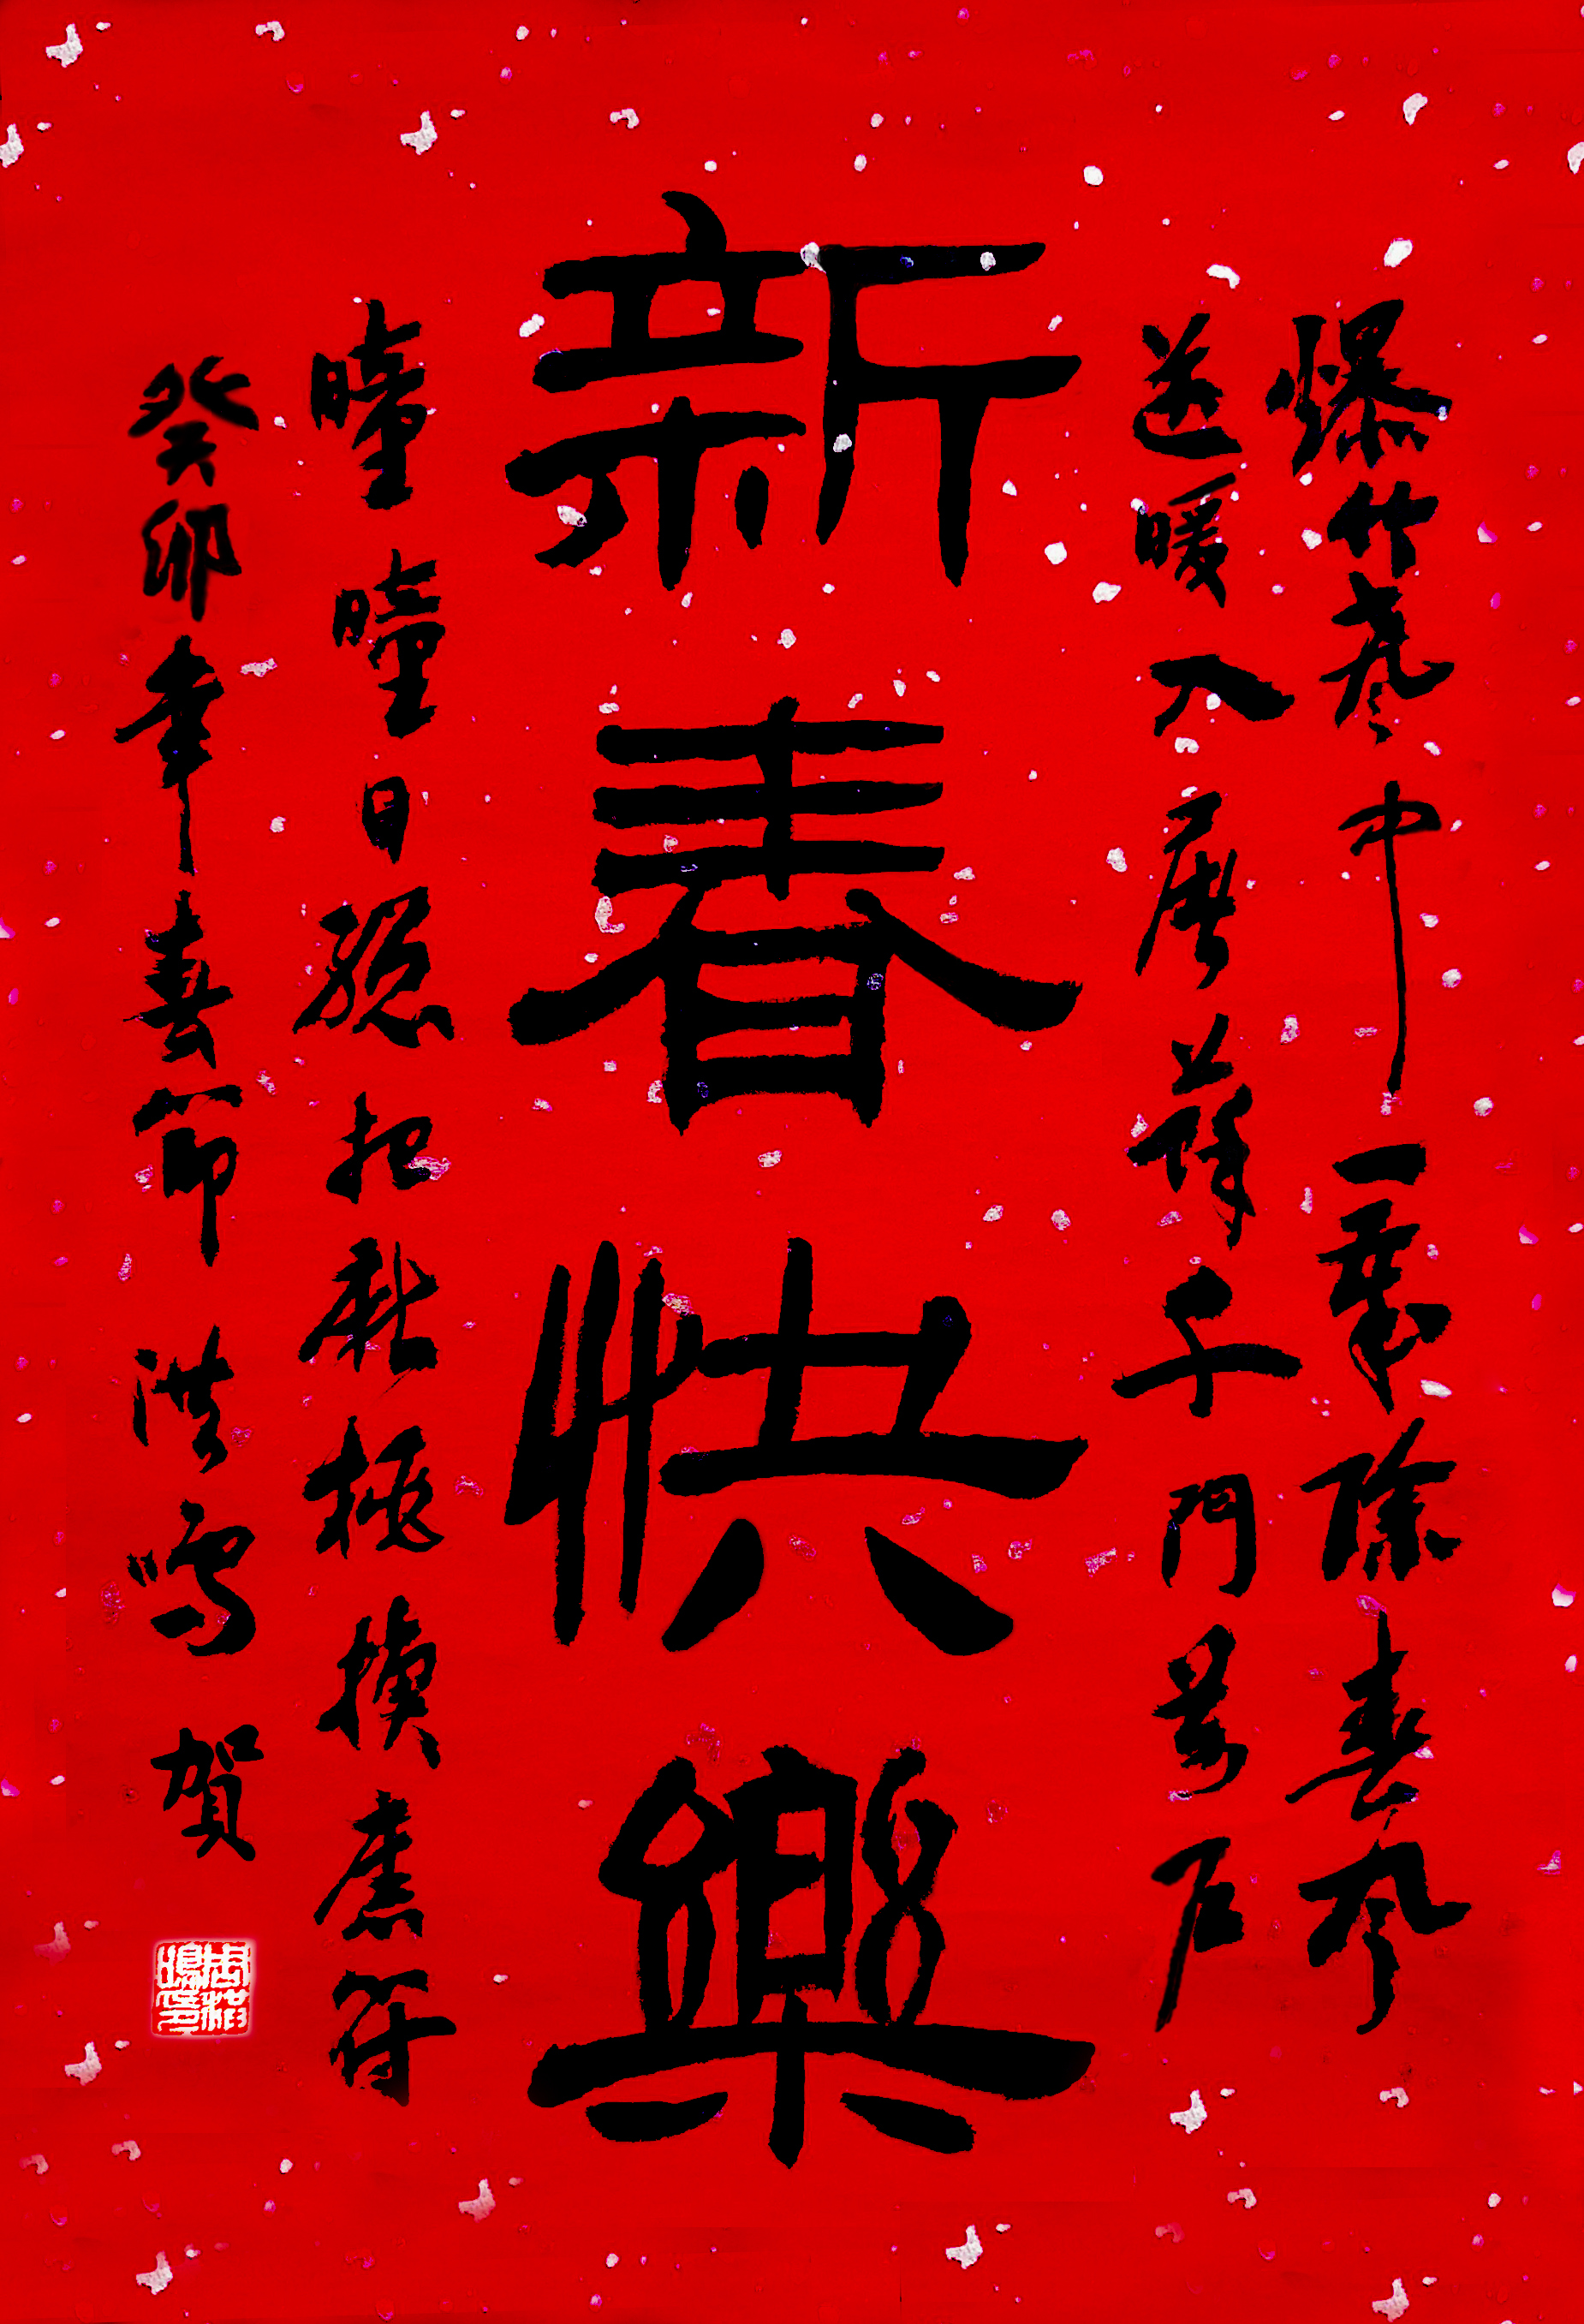 爆竹聲中一歲除春風
送暖入屠蘇千門萬戶
新春快樂
曈曈日總把新桃換舊符
癸卯年春節洪鳴賀
周洪鳴印